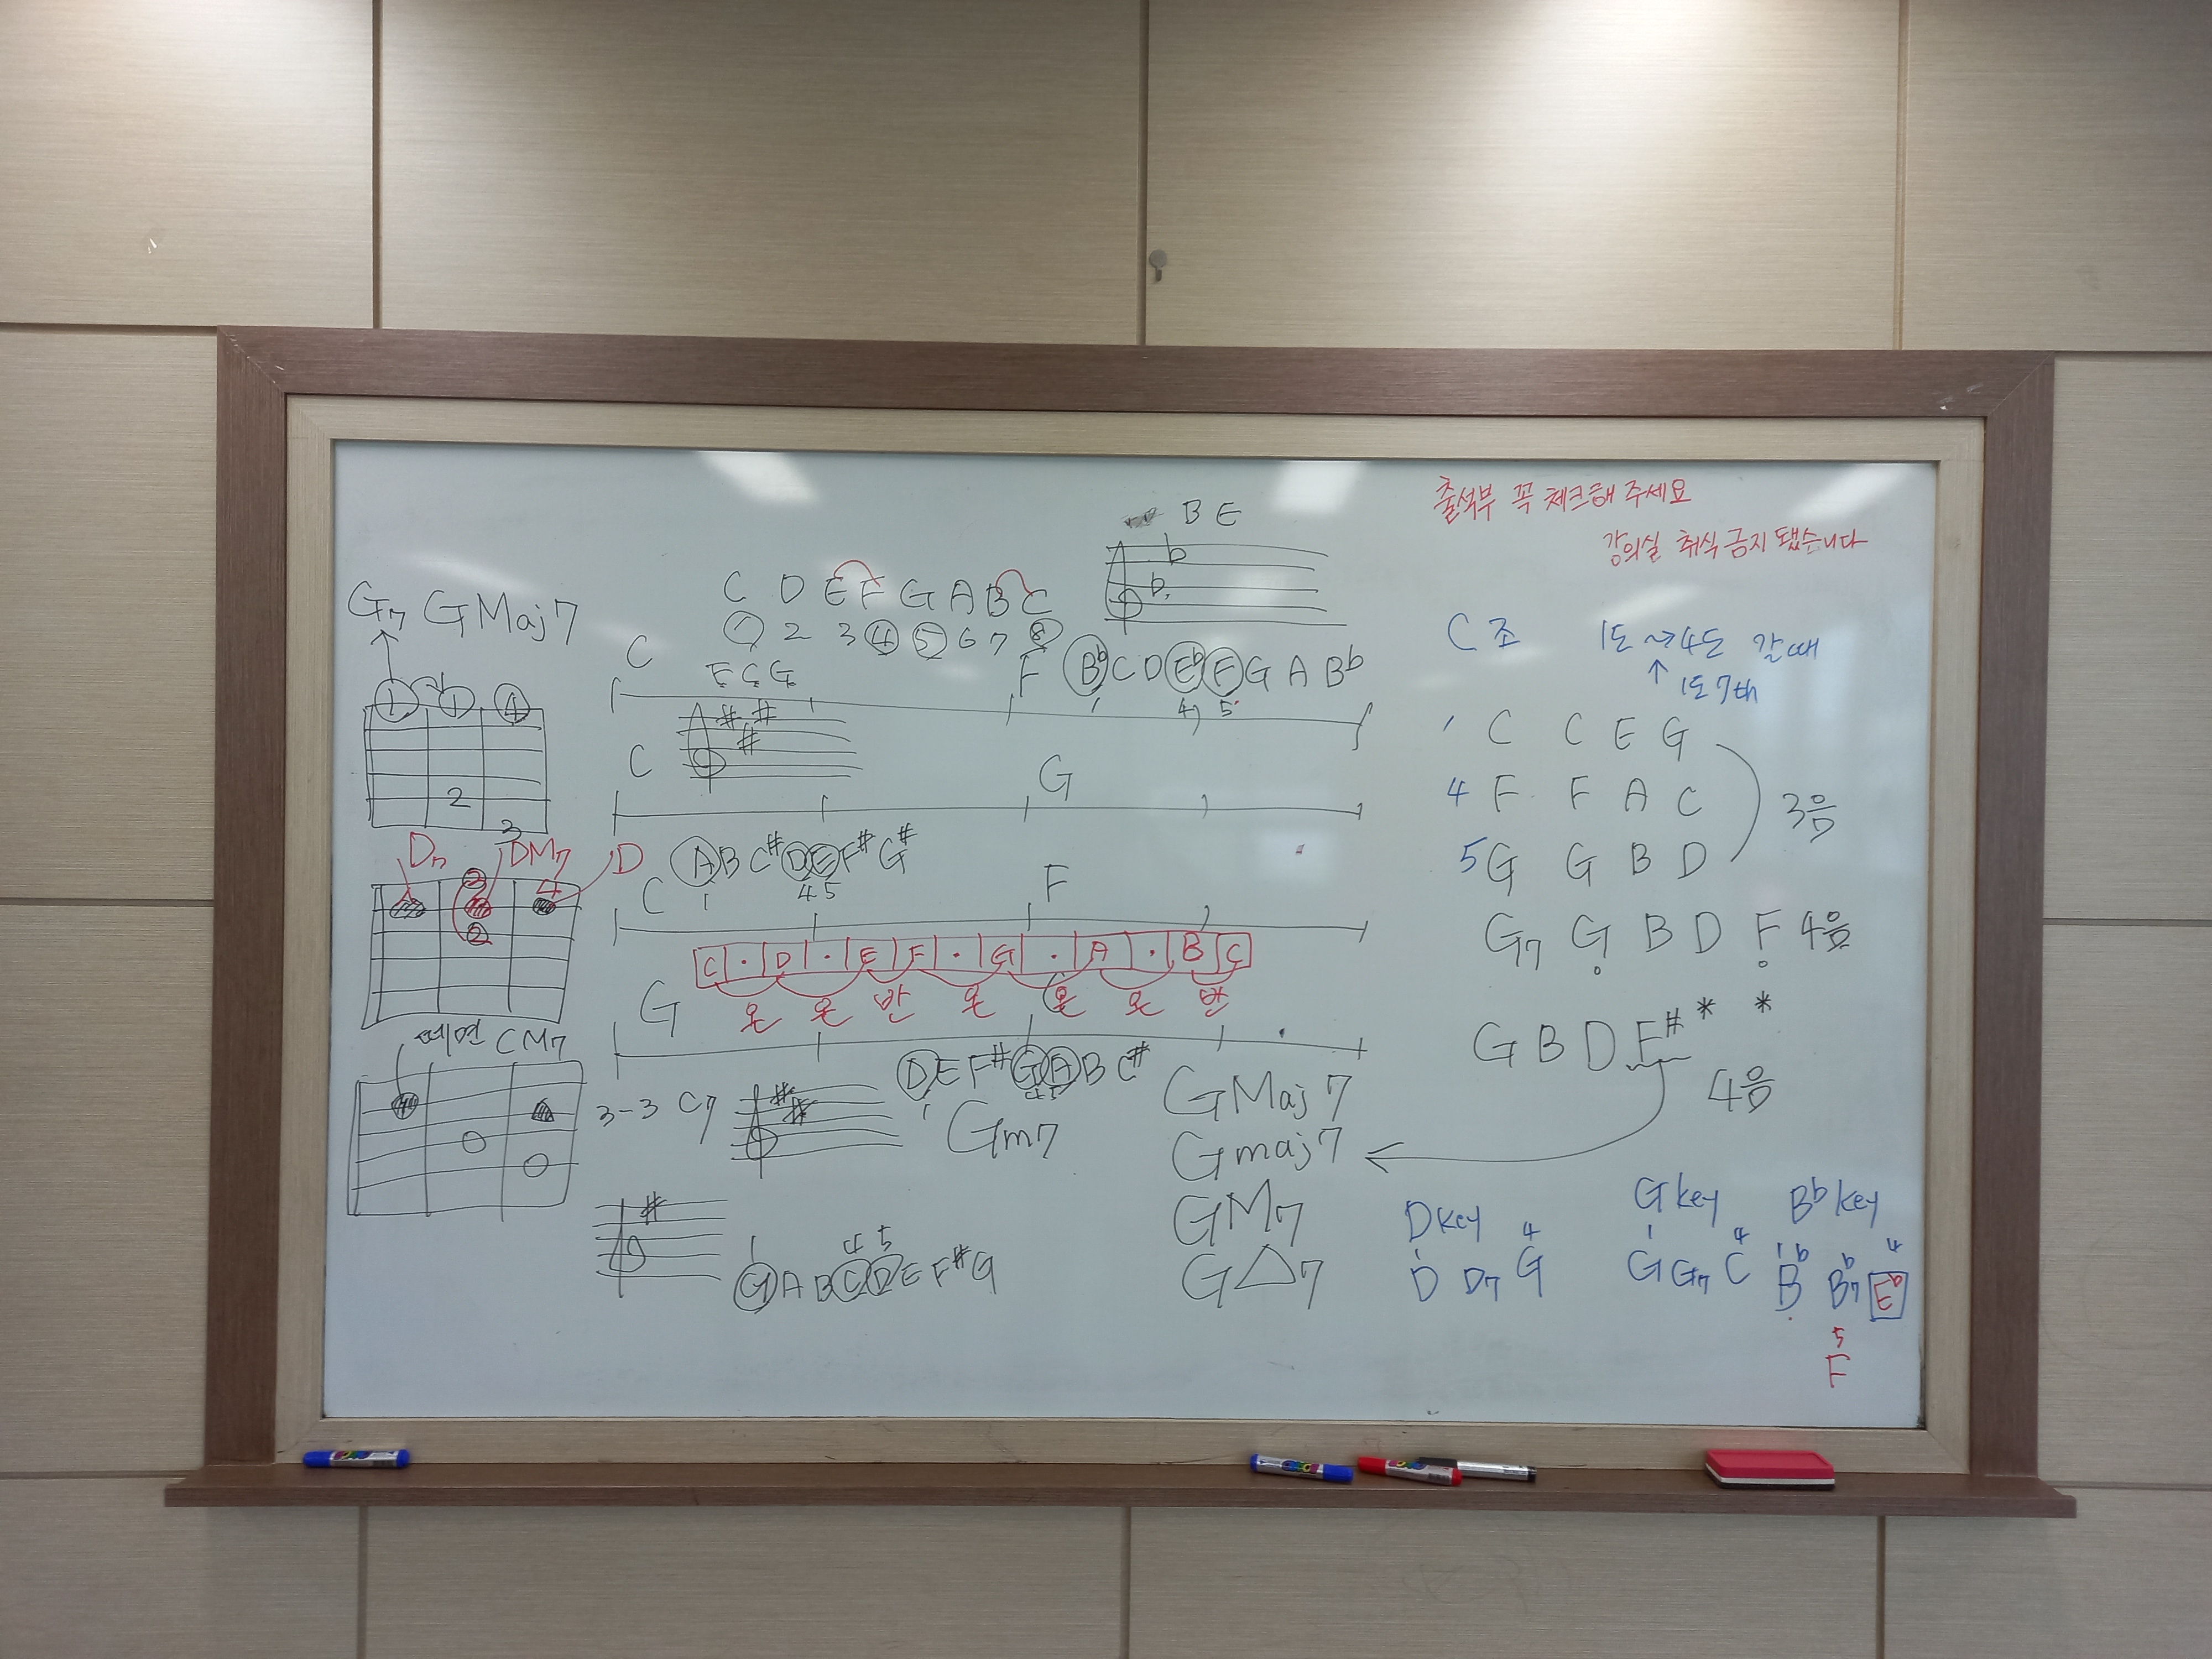 출석부 꼭 체크해 주세요
강의실 취식 금지 됐습니다
B E
b
b
G7 GMaj7
1 1 4
2
3
C D E F G A B C
1 2 3 4 5 6 7 8
C
F C G
F
Bb C D Eb F G A Bb
1 4 5
# #
#
C
G
D7 DM7 D
2 4
2
A B C# D E F# G#
1 4 5
C
F
C · D · E F · G · A · B C
온 온 반 온 온 온 반
G
떼면 CM7
3-3 C7
# #
D E F# G A B C#
1 4 5
Gm7
#
1 4 5
G A B C D E F# G
GMaj7
Gmaj7
GM7
G△7
C조 1도 → 4도 갈때
↑ 1도 7th
1 C C E G
4 F F A C
5 G G B D
3음
G7 G B D F 4음
G B D F# * *
4음
D key
1 4
D D7 G
G key
1 4
G G7 C
Bb key
1 4
Bb Bb7 Eb
5
F